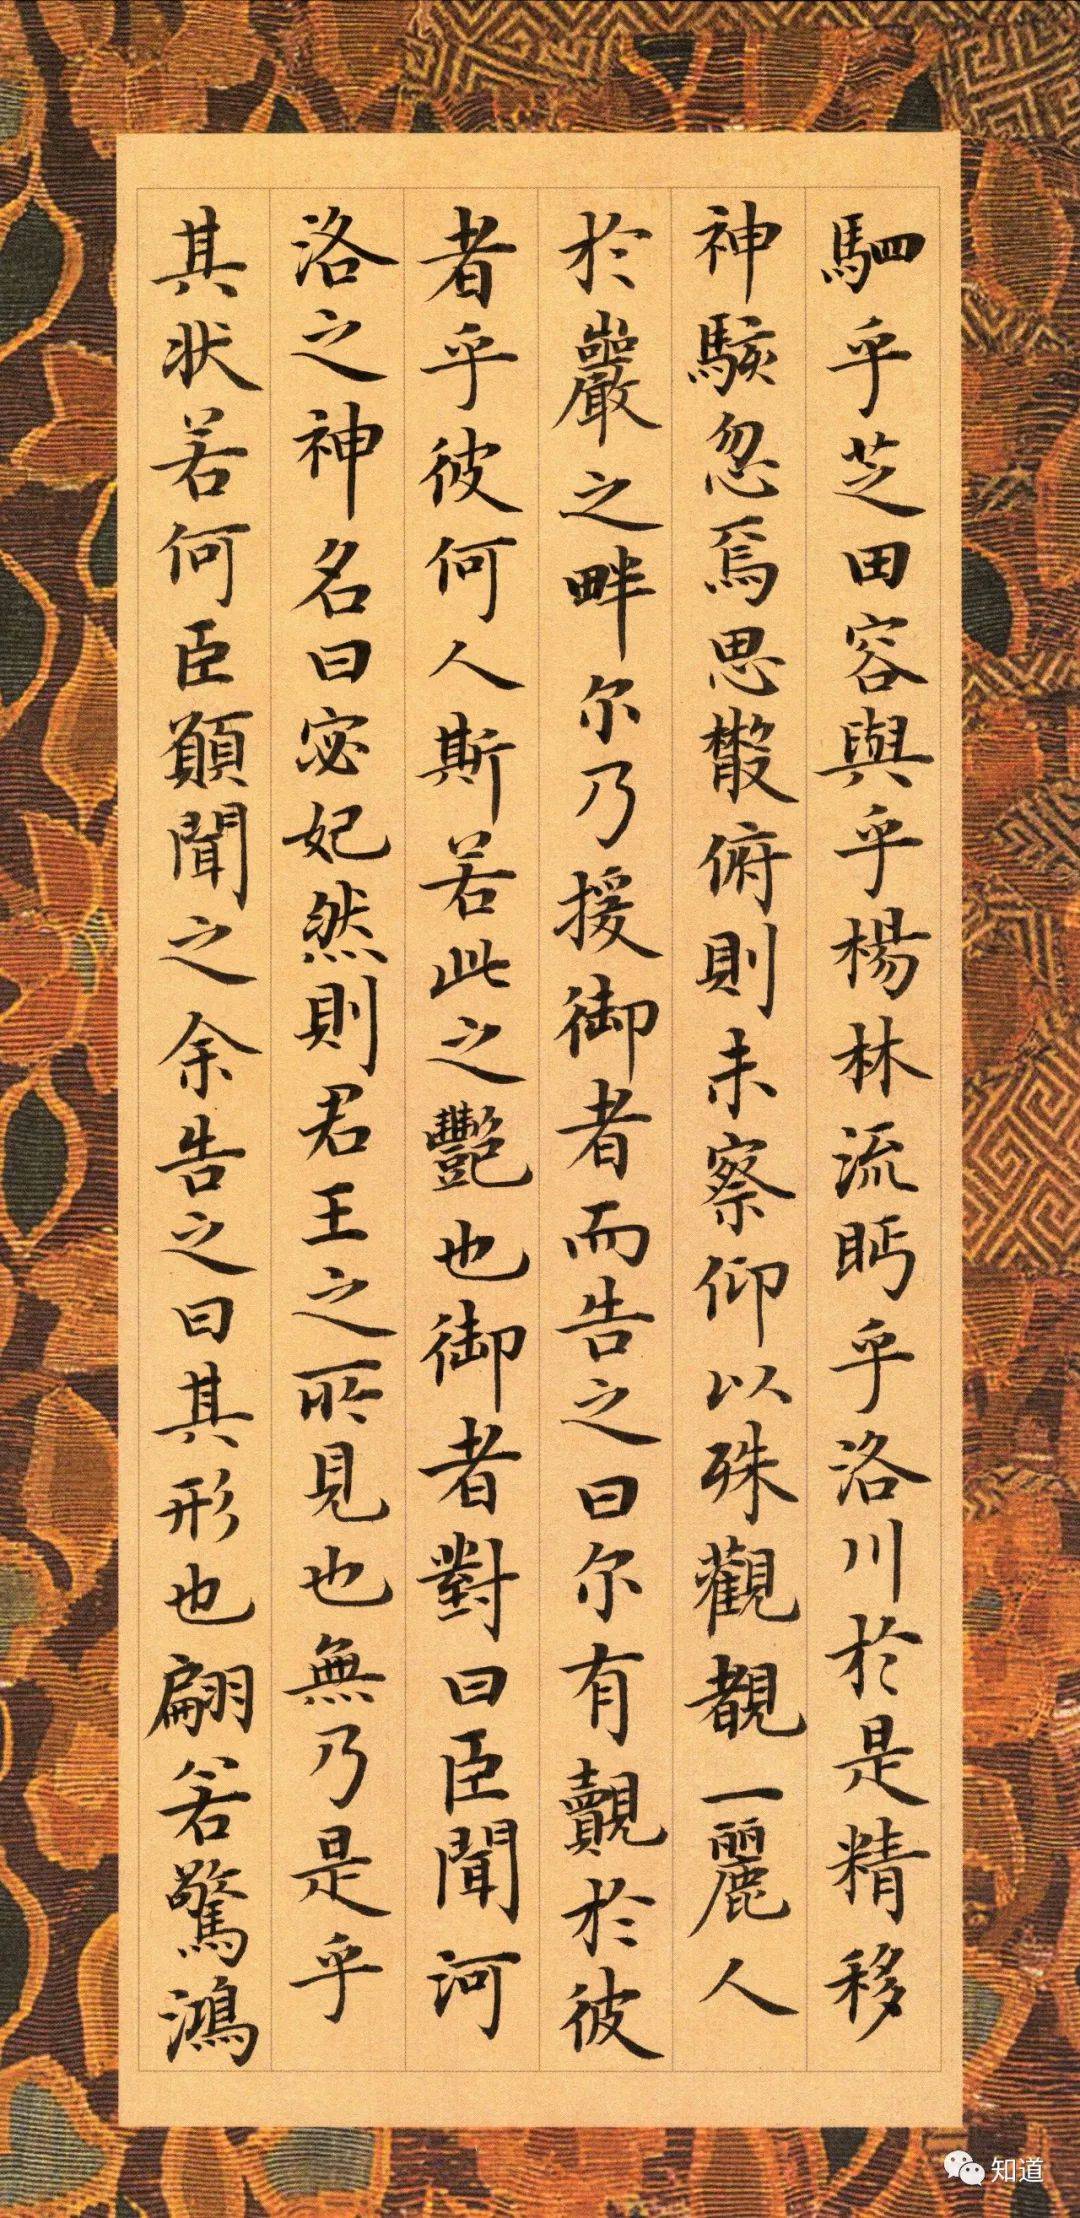 駟乎芝田容與乎楊林流眄乎洛川於是精移
神駭忽焉思散俯則未察仰以殊觀覩一麗人
於巖之畔尔乃援御者而告之曰尔有覿於彼
者乎彼何人斯若此之艷也御者對曰臣聞河
洛之神名曰宓妃然則君王之所見也無乃是乎
其状若何臣願聞之余告之曰其形也翩若驚鴻
知道